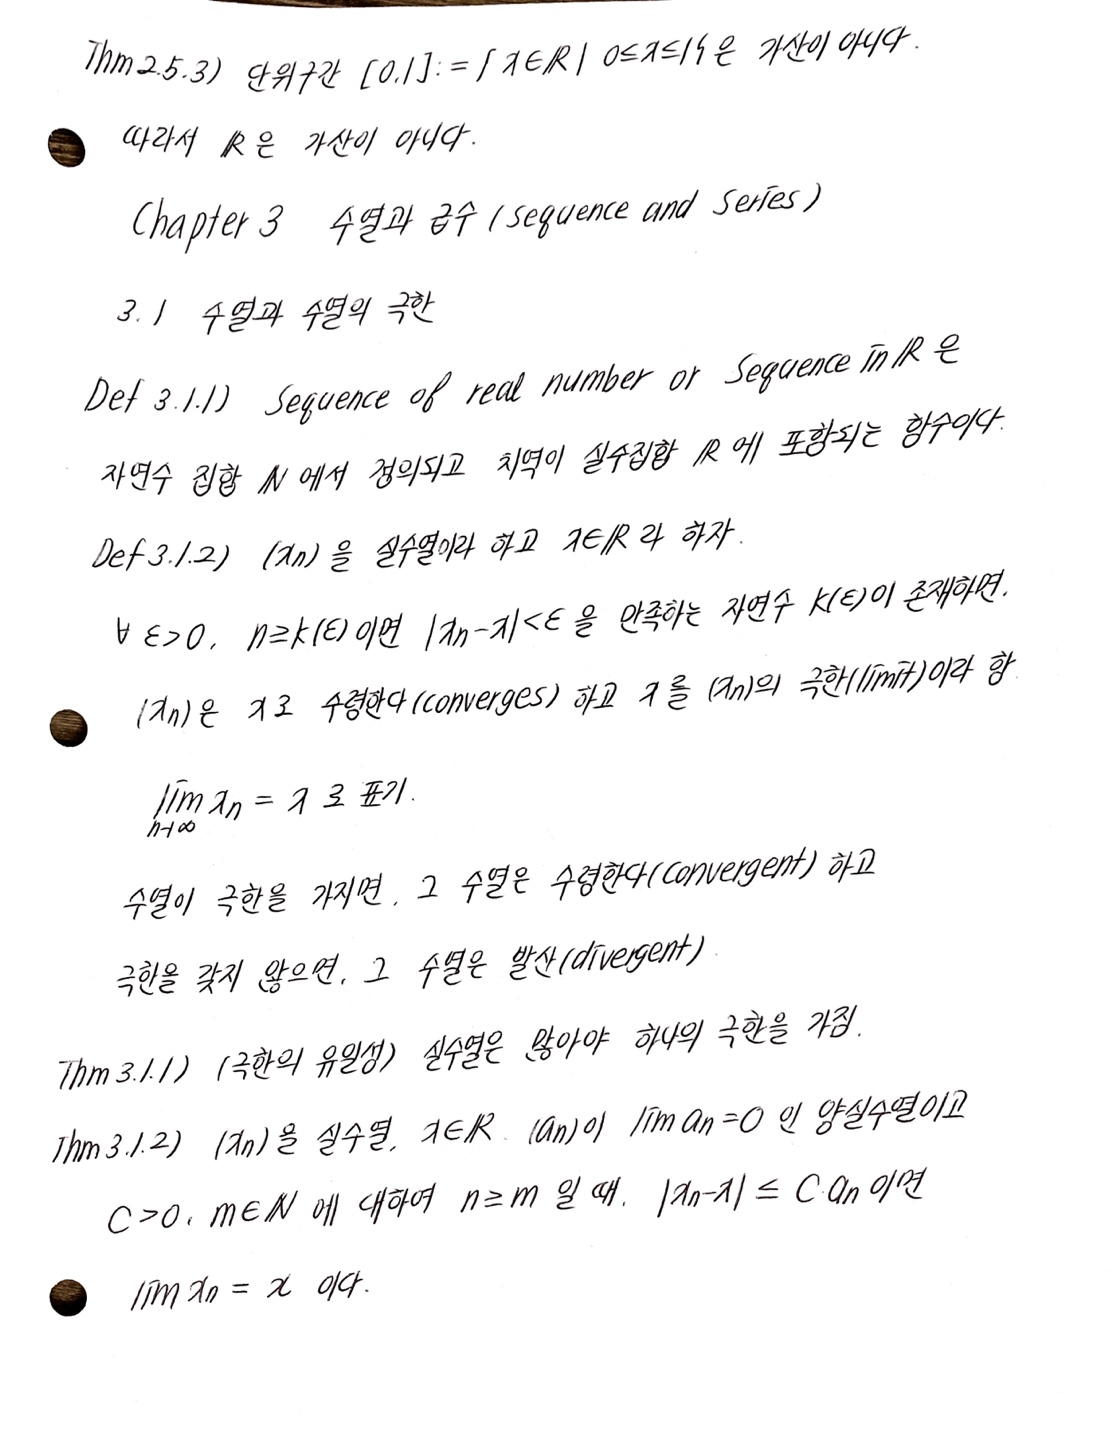 Thm 2.5.3) 단위구간 [0,1] := { x∈ℝ | 0≤x≤1 } 은 가산이 아니다.
따라서 ℝ은 가산이 아니다.
Chapter 3 수열과 급수 (sequence and series)
3.1 수열과 수열의 극한
Def 3.1.1) Sequence of real number or Sequence in ℝ 은
자연수 집합 ℕ 에서 정의되고 치역이 실수집합 ℝ에 포함되는 함수이다.
Def 3.1.2) (xn) 을 실수열이라 하고 x∈ℝ 라 하자.
∀ ε>0, n≥k(ε) 이면 |xn-x|<ε 을 만족하는 자연수 k(ε)이 존재하면,
(xn)은 x로 수렴한다(converges) 하고 x를 (xn)의 극한(limit)이라 함
lim xn = x 로 표기.
n→∞
수열이 극한을 가지면, 그 수열은 수렴한다(convergent) 하고
극한을 갖지 않으면, 그 수열은 발산(divergent)
Thm 3.1.1) (극한의 유일성) 실수열은 많아야 하나의 극한을 가짐.
Thm 3.1.2) (xn)을 실수열, x∈ℝ. (an)이 lim an=0 인 양실수열이고
C>0, m∈ℕ 에 대하여 n≥m 일 때, |xn-x| ≤ C·an 이면
lim xn = x 이다.